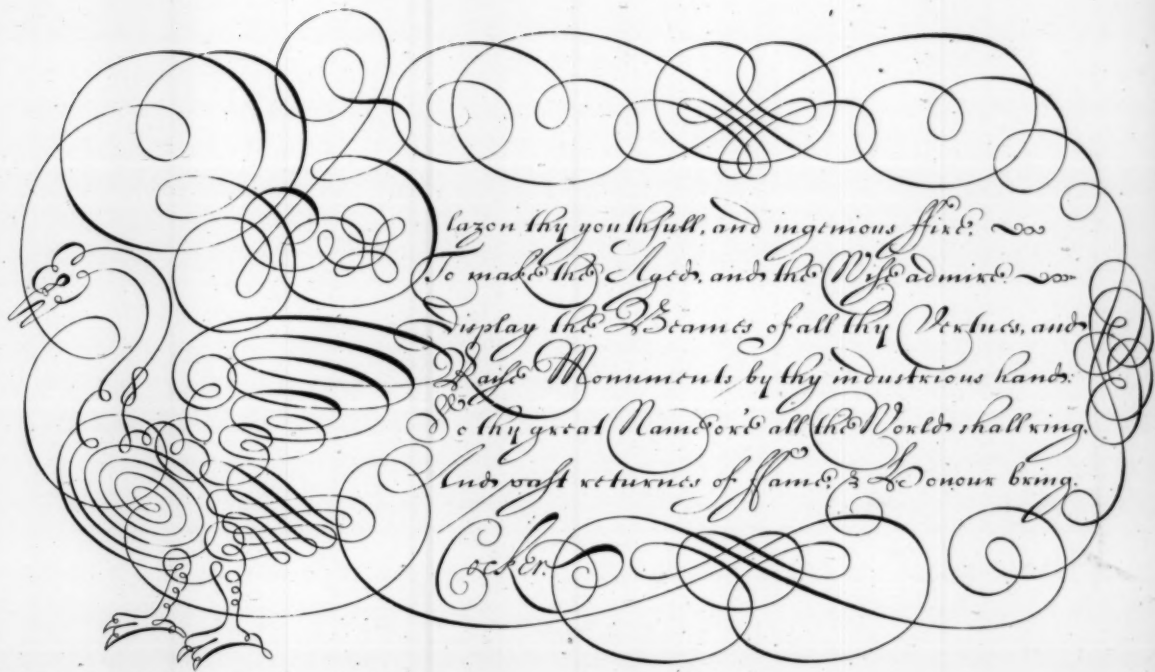 Blazon thy youthfull, and ingenious ffire.
To make the Aged, and the Wise admire.
Display the Beames of all thy Vertues, and
Raise Monuments by thy industrious hand:
So thy great Name o're all the World shall ring,
And vast returnes of ffame, & Honour bring.
Cocker.